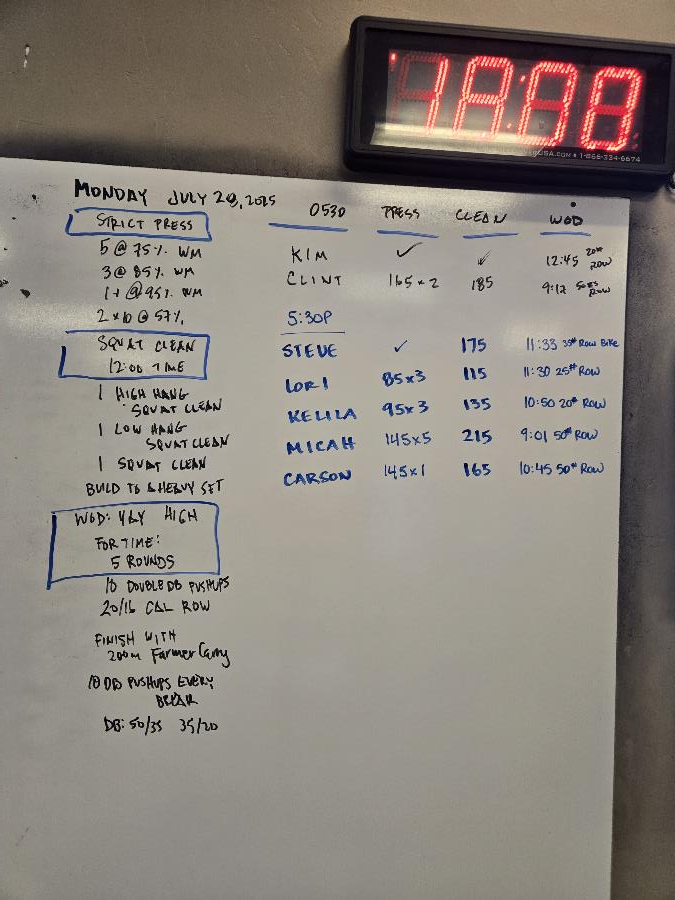 18:00
1-866-334-6674
MONDAY JULY 28, 2025
STRICT PRESS
5 @ 75% WM
3 @ 85% WM
1+ @ 95% WM
2 x 10 @ 57%
SQUAT CLEAN
12:00 TIME
1 HIGH HANG
SQUAT CLEAN
1 LOW HANG
SQUAT CLEAN
1 SQUAT CLEAN
BUILD TO A HEAVY SET
WOD: YAY HIGH
FOR TIME:
5 ROUNDS
10 DOUBLE DB PUSHUPS
20/16 CAL ROW
FINISH WITH
200m Farmer Carry
10 DB PUSHUPS EVERY
BREAK
DB: 50/35 35/20
0530 PRESS CLEAN WOD
KIM ✓ ✓ 12:45 20# ROW
CLINT 165x2 185 9:12 50# ROW
5:30P
STEVE ✓ 175 11:33 35# Row Bike
LORI 85x3 115 11:30 25# ROW
KELILA 95x3 135 10:50 20# ROW
MICAH 145x5 215 9:01 50# ROW
CARSON 145x1 165 10:45 50# ROW